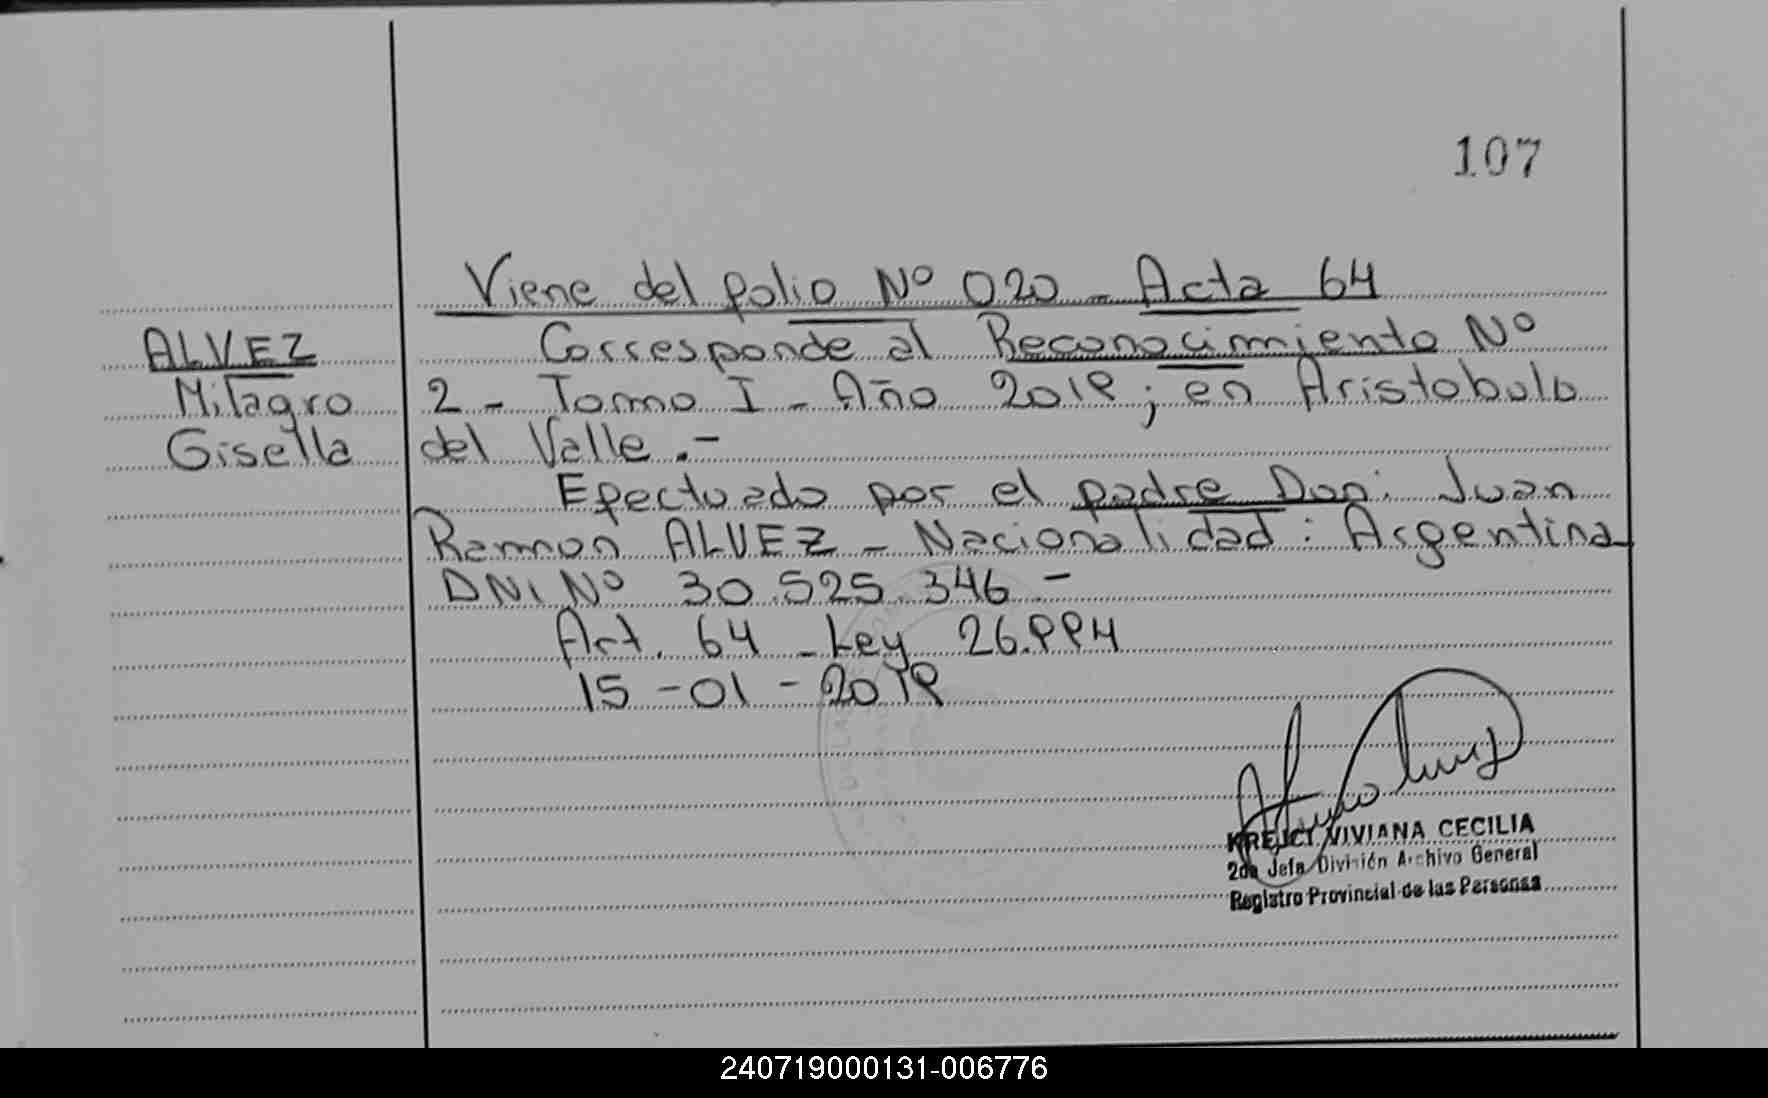 107
Viene del folio Nº 020 - Acta 64
ALVEZ
Milagro
Gisella
Corresponde al Reconocimiento Nº
2 - Tomo I - Año 2019; en Aristobulo
del Valle.-
Efectuado por el padre Don: Juan
Ramon ALVEZ - Nacionalidad: Argentina
DNI Nº 30.525.346 -
Art. 64 - Ley 26.994
15-01-2019
KREJCI VIVIANA CECILIA
2da Jefa División Archivo General
Registro Provincial de las Personas
240719000131-006776